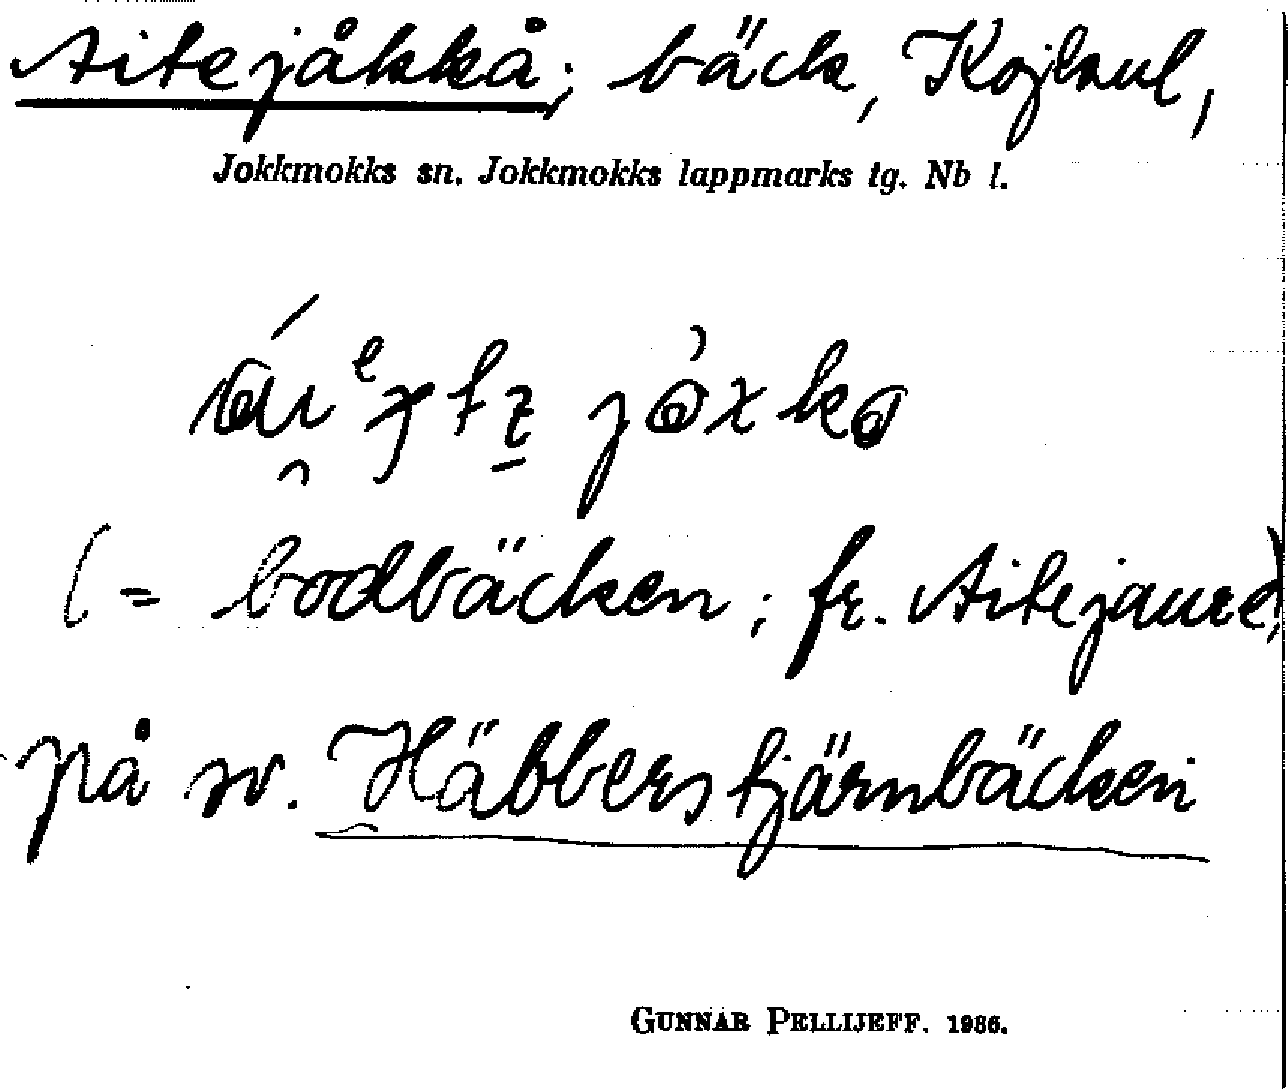 Aitejåkkå; bäck, Kojkul,
Jokkmokks sn. Jokkmokks lappmarks tg. Nb l.
(= bodbäcken; fr. Aitejaure)
på sv. Häbberstjärnbäcken
GUNNAR PELLIJEFF. 1986.